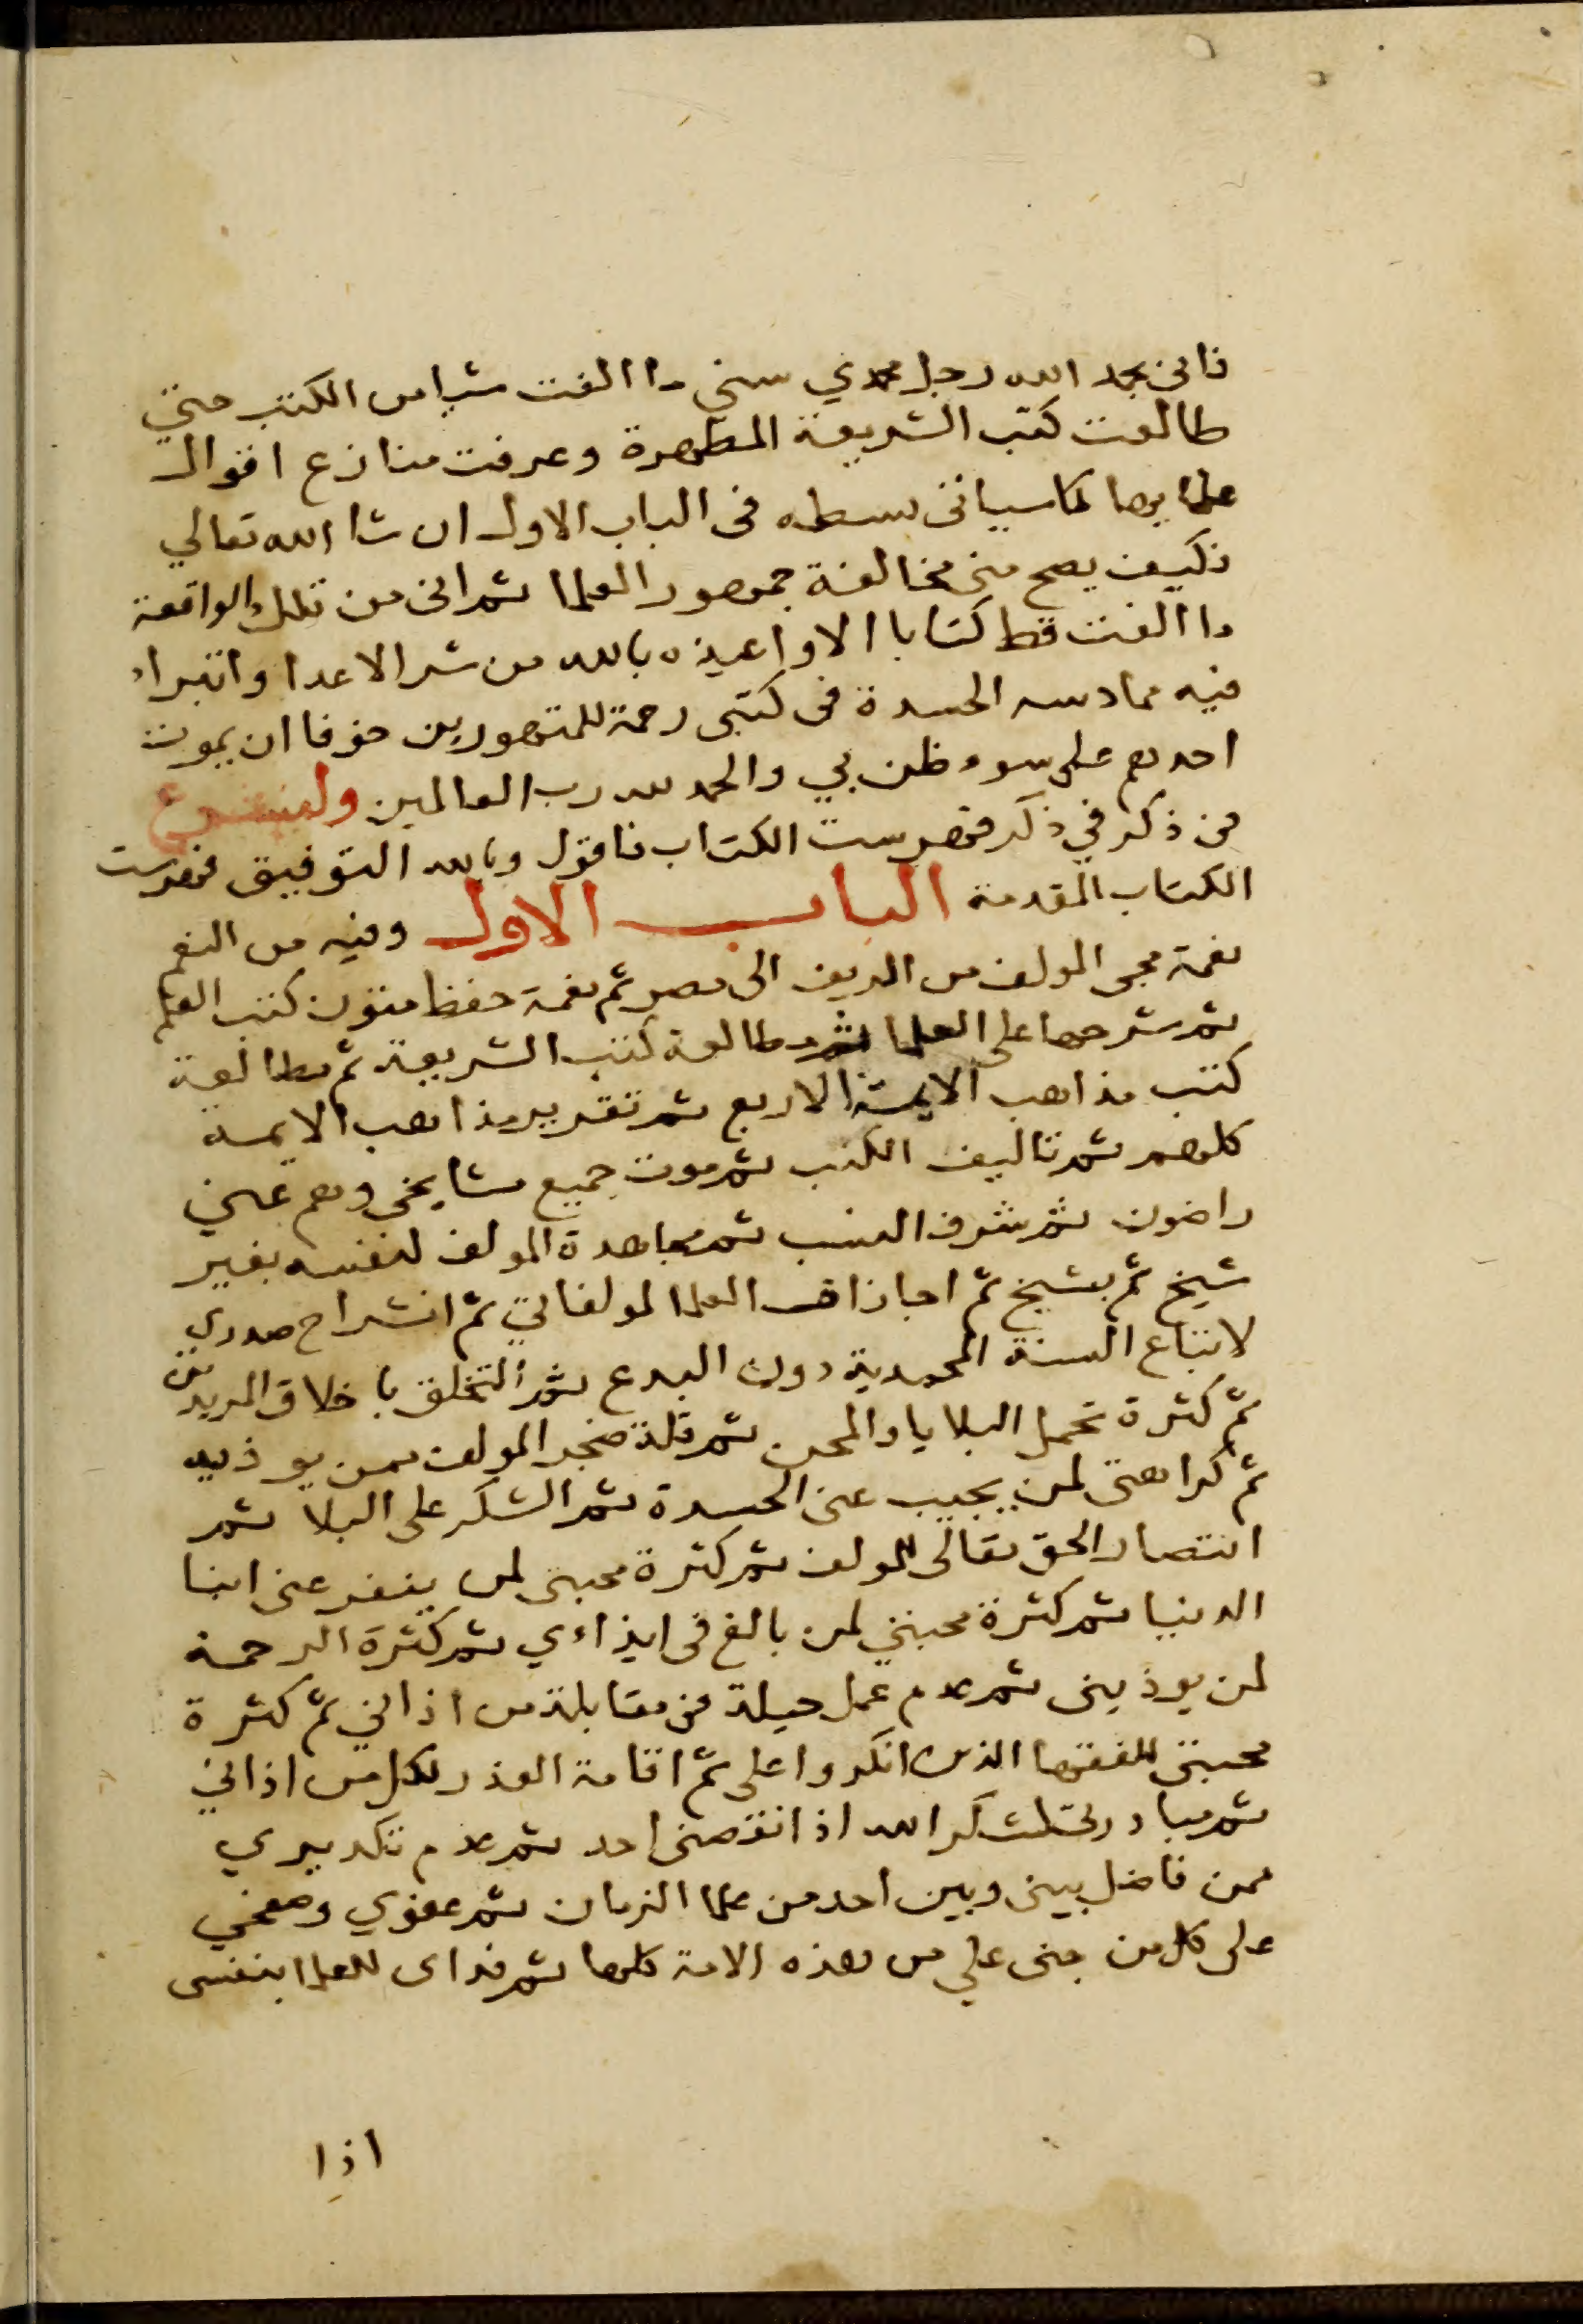 فانى بحمد الله رجل محمدي سني ما الفت شيا من الكتب حتى
طالعت كتب الشريعة المطهرة وعرفت منازع اقوال
علمايها كما سياتى بسطه فى الباب الاول ان شا الله تعالي
فكيف يصح منى مخالفة جمهور العلما ثم انى من تلك الواقعة
ما الفت قط كتابا الا واعيذه بالله من شر الاعدا واتبرا
فيه مما دسه الحسدة فى كتبى رحمة للمتهورين خوفا ان يموت
احدهم على سوء ظن بي والحمد لله رب العالمين ولنشرع
من ذكر في ذكر فهرست الكتاب فاقول وبالله التوفيق فهرست
الكتاب المقدمة البـاب الاول وفيه من النعم
نعمة مجى المولف من الريف الى مصر ثم نعمة حفظ متون كتب العلم
ثم شرحها على العلما ثم مطالعة كتب الشريعة ثم مطالعة
كتب مذاهب الايمة الاربع ثم تقرير مذاهب الايمة
كلهم ثم تاليف الكتب ثم موت جميع مشايخى وهم عني
راضون ثم شرف النسب ثم مجاهدة المولف لنفسه بغير
شيخ ثم بشيخ ثم اجازات العلما لمولفاتي ثم انشراح صدري
لاتباع السنة المحمدية دون البدع ثم التخلق باخلاق المريدين
ثم كثرة تحمل البلايا والمحن ثم قلة ضجر المولف ممن يوذيه
ثم كراهتى لمن يجيب عنى الحسدة ثم الشكر على البلا ثم
انتصار الحق تعالى للمولف ثم كثرة محبتى لمن ينفر عنى ابنا
الدنيا ثم كثرة محبتي لمن بالغ فى ايذاءي ثم كثرة الرحمة
لمن يوذينى ثم عدم عمل حيلة فى مقابلة من اذاني ثم كثرة
محبتى للفقها الذين انكروا على ثم اقامة العذر لكل من اذاني
ثم مبادرتى لشكر الله اذا نقصنى احد ثم عدم تكديري
ممن فاضل بينى وبين احد من علما الزمان ثم عفوي وصفحي
على كل من جنى علي من هذه الامة كلها ثم فداى للعلما بنفسى
اذا